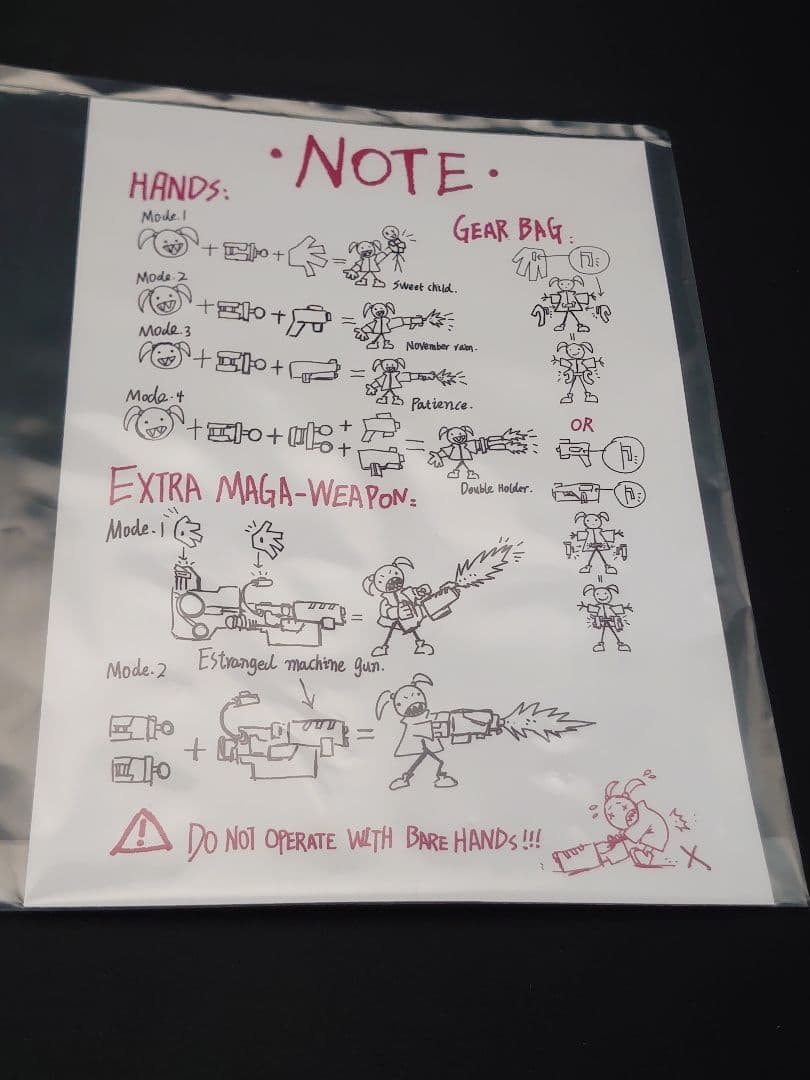 ·NOTE·
HANDS:
Mode.1
Sweet child.
Mode.2
November rain.
Mode.3
Patience.
Mode.4
Double Holder.
GEAR BAG:
OR
EXTRA MAGA-WEAPON:
Mode.1
Estranged machine gun.
Mode.2
DO NOT OPERATE WITH BARE HANDS!!!